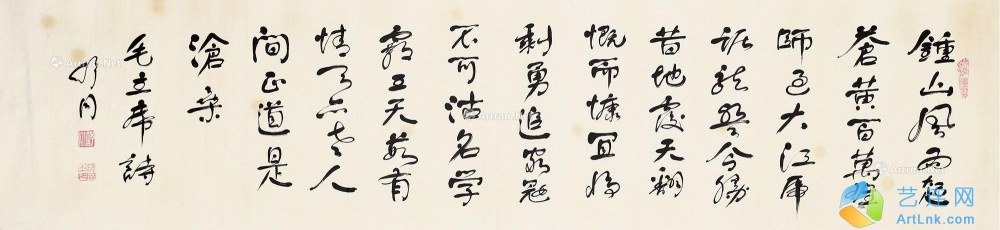 鍾山風雨起
蒼黃百萬雄
師過大江虎
踞龍盤今勝
昔地覆天翻
慨而慷宜將
剩勇追窮寇
不可沽名学
霸王天若有
情天亦老人
間正道是
滄桑
毛主席詩
艺连网
ArtLnk.com